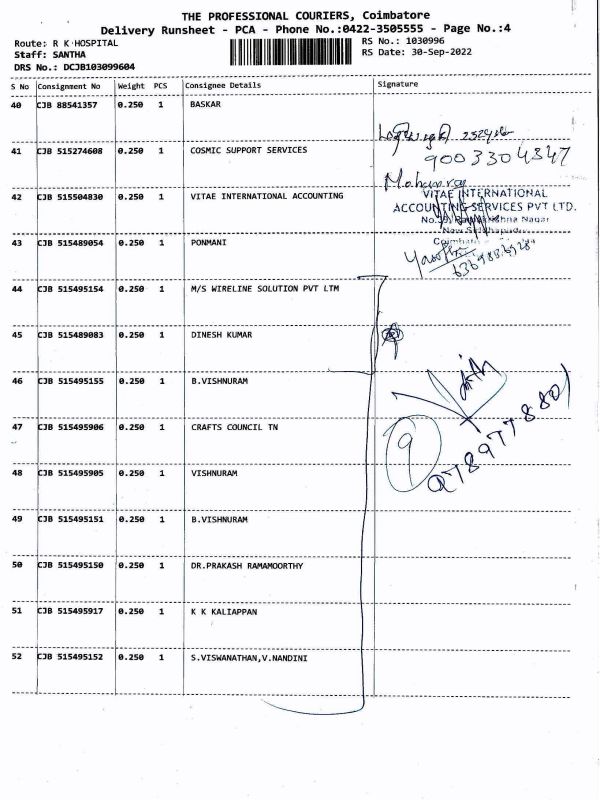 THE PROFESSIONAL COURIERS, Coimbatore
Delivery Runsheet - PCA - Phone No.:0422-3505555 - Page No.:4
Route: R K HOSPITAL
Staff: SANTHA
DRS No.: DCJB103099604
RS No.: 1030996
RS Date: 30-Sep-2022
S No Consignment No Weight PCS Consignee Details Signature
40 CJB 88541357 0.250 1 BASKAR
41 CJB 515274608 0.250 1 COSMIC SUPPORT SERVICES
9003304347
Mohanraj
42 CJB 515504830 0.250 1 VITAE INTERNATIONAL ACCOUNTING
VITAE INTERNATIONAL
ACCOUNTING SERVICES PVT LTD.
43 CJB 515489054 0.250 1 PONMANI
44 CJB 515495154 0.250 1 M/S WIRELINE SOLUTION PVT LTM
45 CJB 515489083 0.250 1 DINESH KUMAR
46 CJB 515495155 0.250 1 B.VISHNURAM
47 CJB 515495906 0.250 1 CRAFTS COUNCIL TN
9
48 CJB 515495905 0.250 1 VISHNURAM
49 CJB 515495151 0.250 1 B.VISHNURAM
50 CJB 515495150 0.250 1 DR.PRAKASH RAMAMOORTHY
51 CJB 515495917 0.250 1 K K KALIAPPAN
52 CJB 515495152 0.250 1 S.VISWANATHAN,V.NANDINI